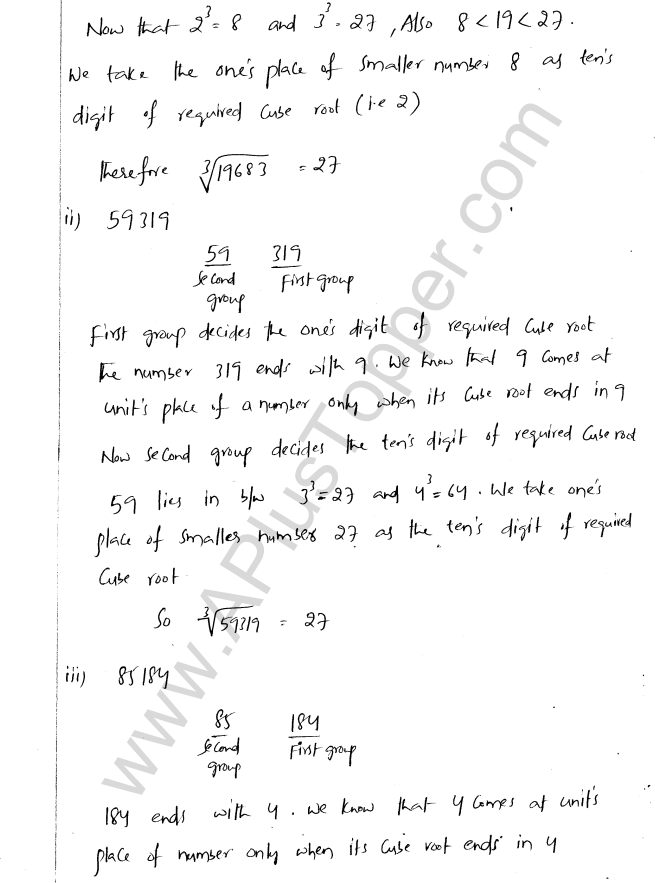 Now that 2³ = 8 and 3³ = 27, Also 8 < 19 < 27.
We take the one's place of smaller number 8 as ten's
digit of required Cube root (i.e 2)
Therefore ∛19683 = 27
ii) 59319
59 319
Second First group
group
First group decides the one's digit of required Cube root
The number 319 ends with 9. We know that 9 Comes at
unit's place of a number only when its Cube root ends in 9
Now Second group decides the ten's digit of required Cube root
59 lies in b/w 3³ = 27 and 4³ = 64. We take one's
place of smaller number 27 as the ten's digit of required
Cube root.
So ∛59319 = 27
iii) 85184
85 184
Second First group
group
184 ends with 4. We know that 4 Comes at unit's
place of number only when its Cube root ends in 4
www.APlusTopper.com